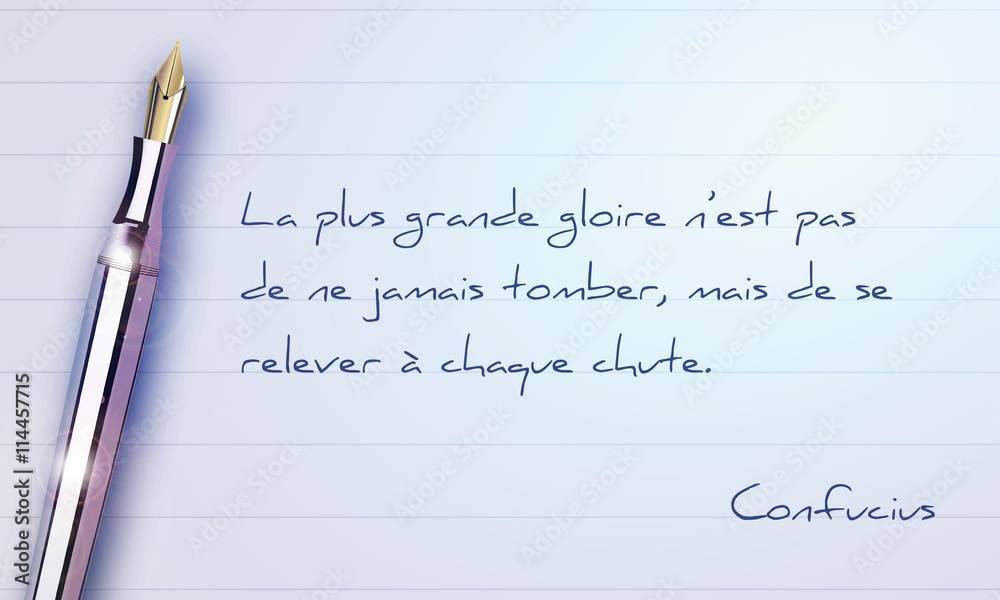 La plus grande gloire n'est pas
de ne jamais tomber, mais de se
relever à chaque chute.
Confucius
Adobe Stock | #114457715